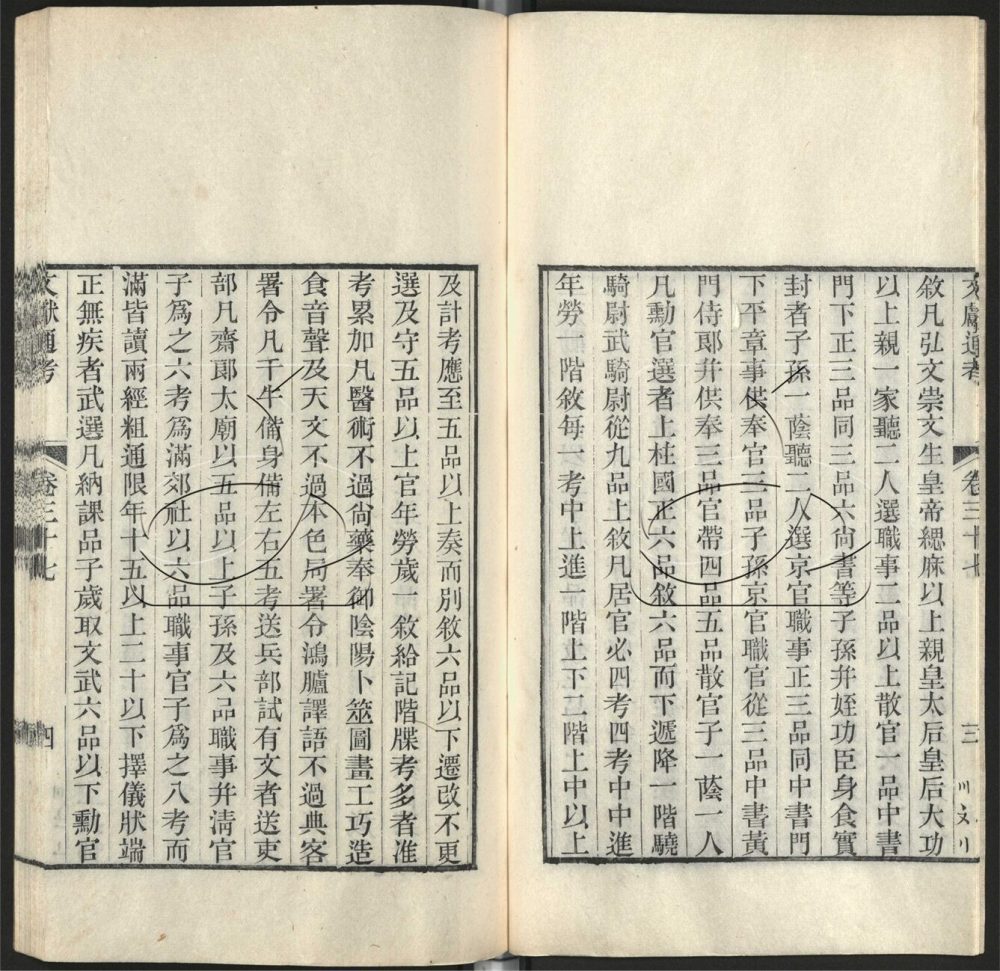 文獻通考 卷三十七 三
敘凡弘文崇文生皇帝緦麻以上親皇太后皇后大功
以上親一家聽二人選職事二品以上散官一品中書
門下正三品同三品六尚書等子孫幷姪功臣身食實
封者子孫一蔭聽二人選京官職事正三品同中書門
下平章事供奉官三品子孫京官職官從三品中書黃
門侍郞幷供奉三品官帶四品五品散官子一蔭一人
凡勳官選者上柱國正六品敘六品而下遞降一階驍
騎尉武騎尉從九品上敘凡居官必四考四考中中進
年勞一階敘每一考中上進一階上下二階上中以上
及計考應至五品以上奏而別敘六品以下遷改不更
選及守五品以上官年勞歲一敘給記階牒考多者准
考累加凡醫術不過尚藥奉御陰陽卜筮圖畫工巧造
食音聲及天文不過本色局署令鴻臚譯語不過典客
署令凡千牛備身備左右五考送兵部試有文者送吏
部凡齋郞太廟以五品以上子孫及六品職事幷淸官
子爲之六考爲滿郊社以六品職事官子爲之八考而
滿皆讀兩經粗通限年十五以上二十以下擇儀狀端
正無疾者武選凡納課品子歲取文武六品以下勳官
文獻通考 卷三十七 四